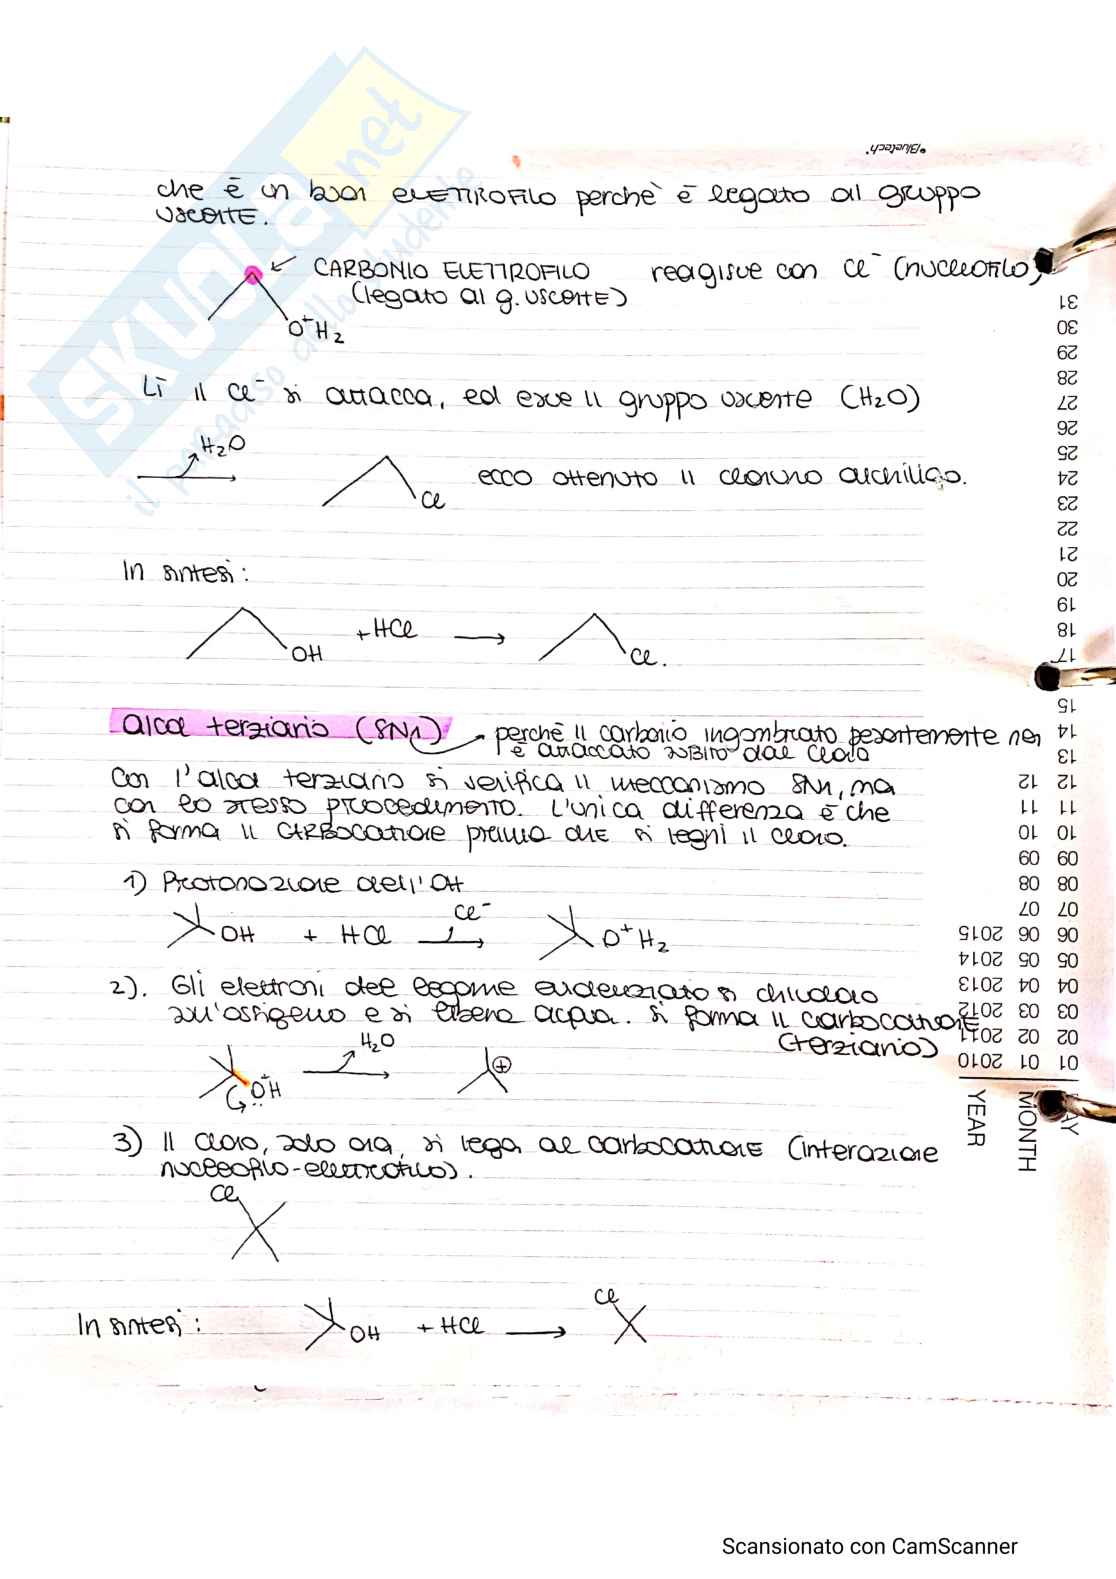 •Bluetech•
SKUOLA.net
il paradiso dello studente
che è un buon ELETTROFILO perchè è legato al gruppo
uscente.
CARBONIO ELETTROFILO reagisce con Cl⁻ (nucleofilo)
(legato al g. uscente)
O⁺H₂
Lì il Cl⁻ si attacca, ed esce il gruppo uscente (H₂O)
H₂O
Cl
ecco ottenuto il cloruro alchilico.
In sintesi:
OH
+HCl
Cl.
alcol terziario (SN1) perchè il carbonio ingombrato pesantemente non
è attaccato subito dal cloro
Con l'alcol terziario si verifica il meccanismo SN1, ma
con lo stesso procedimento. L'unica differenza è che
si forma il carbocatione prima che si leghi il cloro.
1) Protonazione dell'OH
OH + HCl
Cl⁻
O⁺H₂
2). Gli elettroni del legame evidenziato si chiudono
sull'ossigeno e si libera acqua. Si forma il carbocatione
(terziario)
H₂O
O⁺H
⊕
3) Il cloro, solo ora, si lega al carbocatione (interazione
nucleofilo-elettrofilo).
Cl
In sintesi:
OH
+HCl
Cl
31
30
29
28
27
26
25
24
23
22
21
20
19
18
17
15
14
13
12 12
11 11
10 10
09 09
08 08
07 07
2015 06 06
2014 05 05
2013 04 04
2012 03 03
2011 02 02
2010 01 01
YEAR MONTH
Scansionato con CamScanner